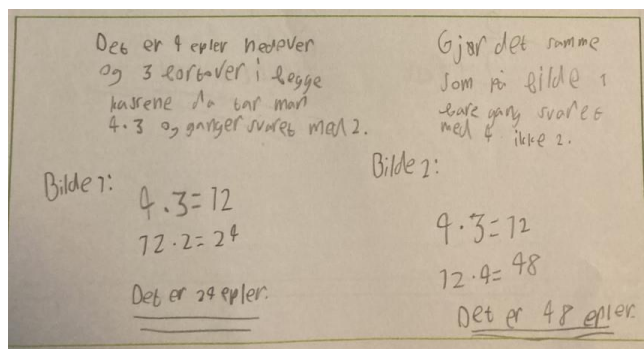 Det er 4 epler nedover
og 3 bortover i begge
kassene da tar man
4·3 og ganger svaret med 2.
Bilde 1:
4·3=12
12·2=24
Det er 24 epler.
Gjør det samme
som på bilde 1
bare gang svaret
med 4 ikke 2.
Bilde 2:
4·3=12
12·4=48
Det er 48 epler.